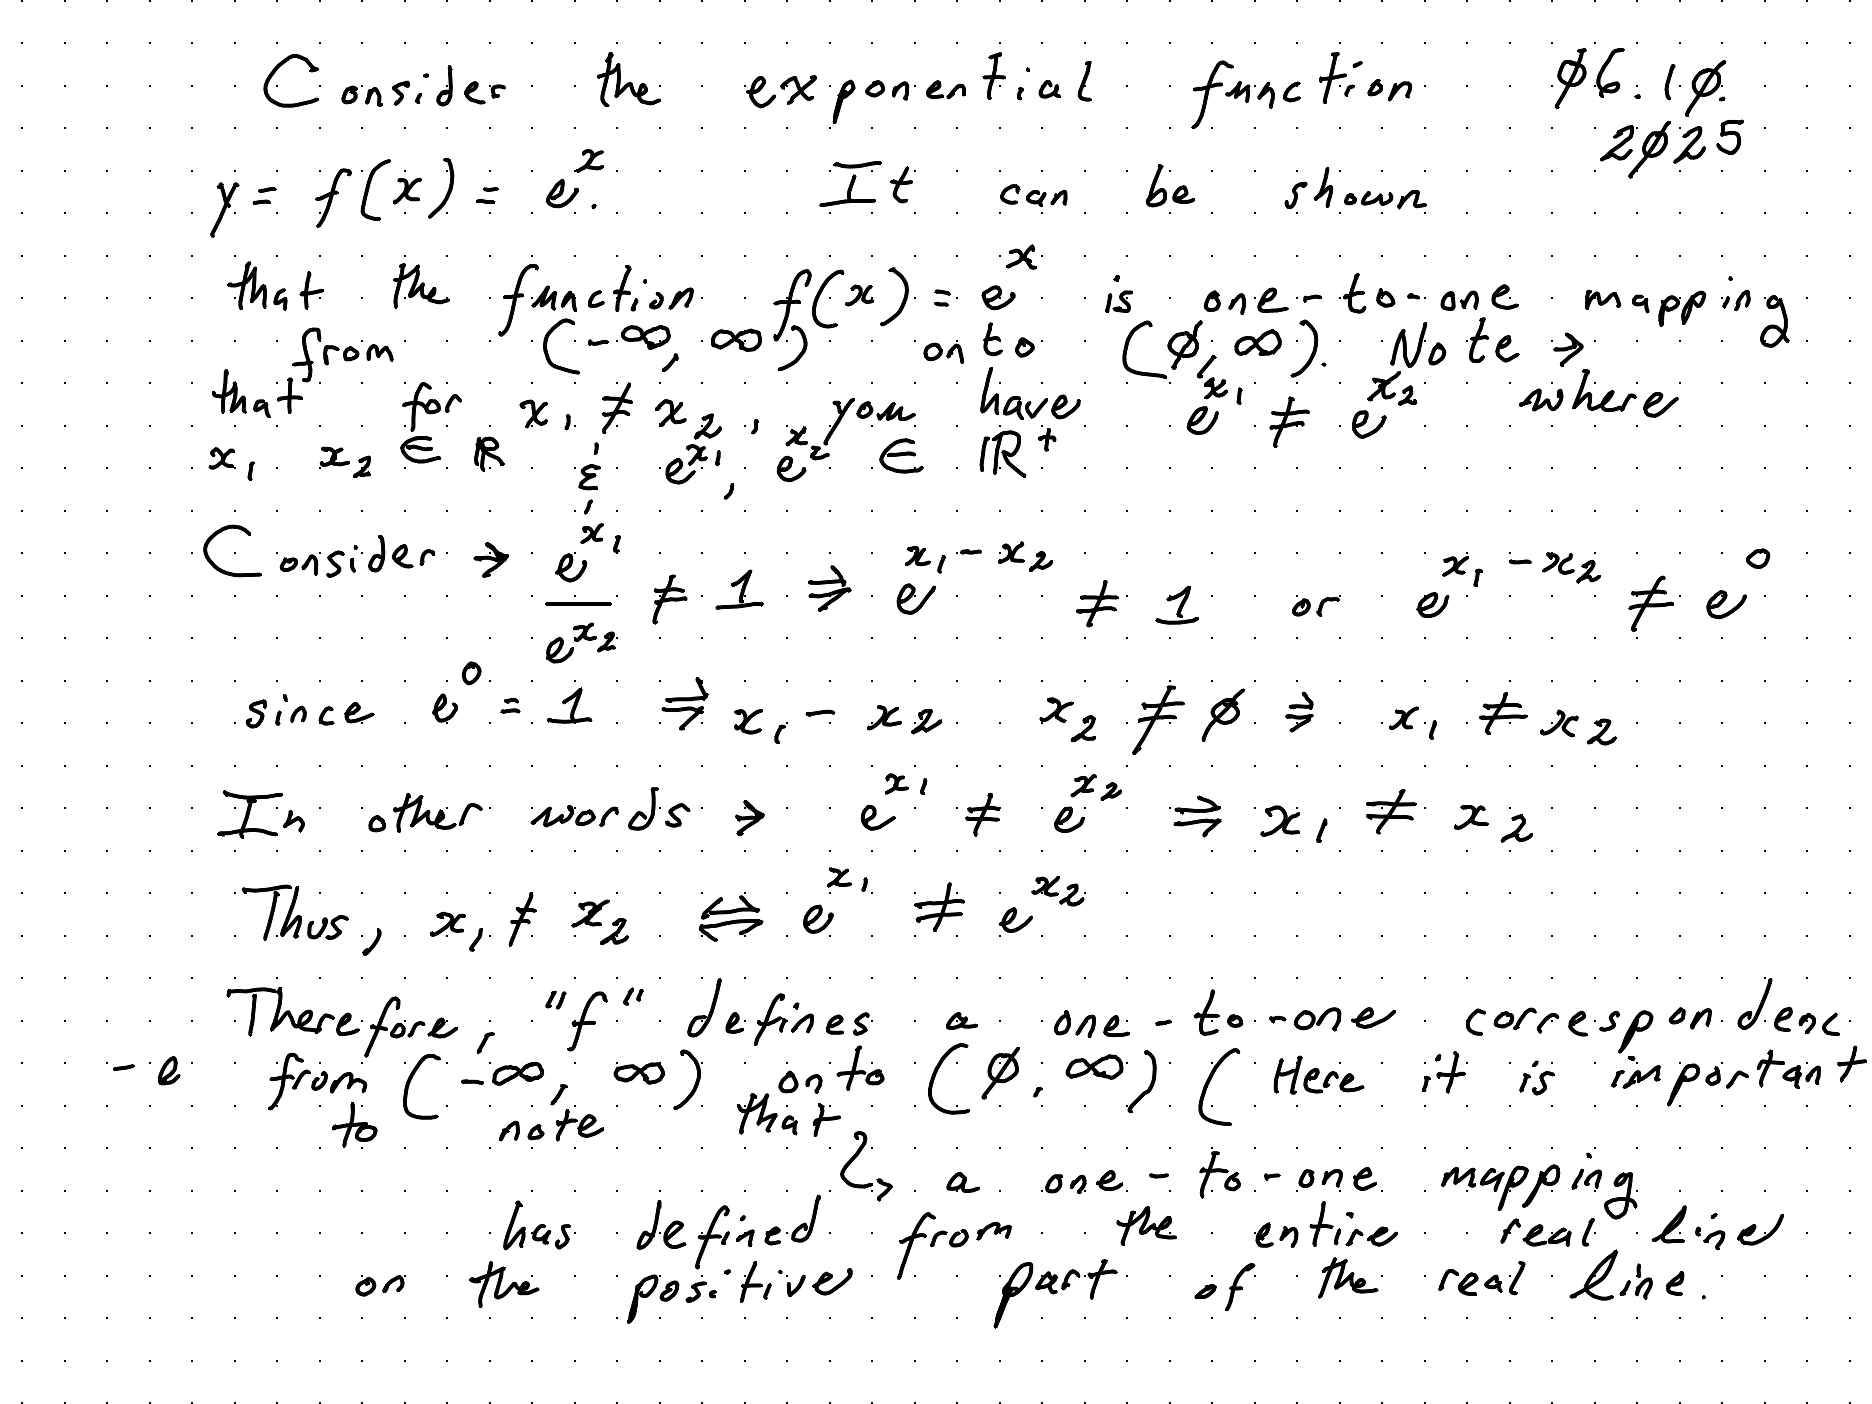 Consider the exponential function ø6.1ø.
2ø25
y = f(x) = e^x. It can be shown
that the function f(x) = e^x is one-to-one mapping
from (-∞, ∞) onto (ø, ∞). Note →
that for x₁ ≠ x₂, you have e^x₁ ≠ e^x₂ where
x₁ x₂ ∈ ℝ & e^x₁, e^x₂ ∈ ℝ⁺
Consider → e^x₁/e^x₂ ≠ 1 ⇒ e^x₁-x₂ ≠ 1 or e^x₁-x₂ ≠ e^0
since e^0 = 1 ⇒ x₁ - x₂ x₂ ≠ ø ⇒ x₁ ≠ x₂
In other words → e^x₁ ≠ e^x₂ ⇒ x₁ ≠ x₂
Thus, x₁ ≠ x₂ ⇔ e^x₁ ≠ e^x₂
Therefore, "f" defines a one-to-one correspondenc
-e from (-∞, ∞) onto (ø, ∞) (Here it is important
to note that
↳ a one-to-one mapping
has defined from the entire real line
on the positive part of the real line.